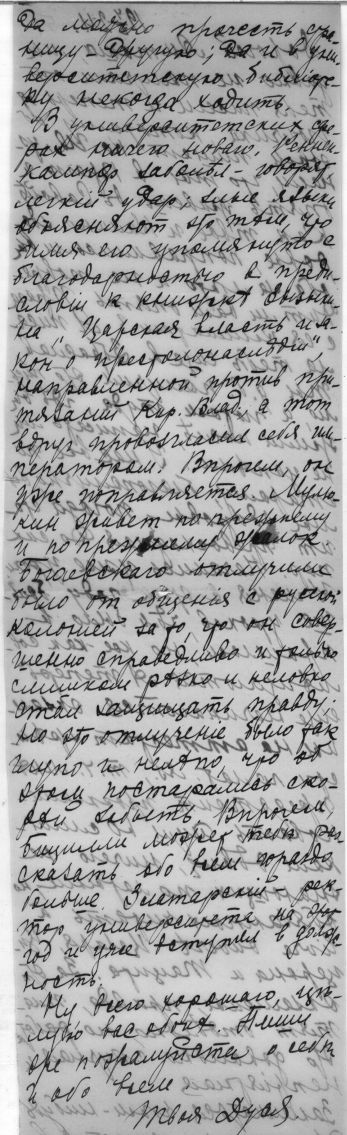 да можно прочесть стра-
ницу-другую; да и в уни-
верситетскую библиоте-
ку некогда ходить.
В университетских сфе-
рах ничего новаго, Ренен-
кампф заболѣл - говорят
легкiй удар; злые языки
объясняют это тем, что
имя его упомянуто с
благодарностью в преди-
словiи к книжке Зызыки-
на „Царская власть и за-
кон о престолонаслѣдiи",
направленной против при-
тязанiй Кир. Влад., а тот
вдруг провозгласил себя им-
ператором. Впрочем, он
уже поправляется. Мулю-
кин живет по прежнему
и по прежнему жалок.
Богаевскаго отлучили
было от общенiя с русской
колонiей за то, что он совер-
шенно справедливо и только
слишком рѣзко и неловко
стал защищать правду.
Но это отлученiе было так
глупо и нелѣпо, что об
этом постарались ско-
рѣй забыть. Впрочем,
Бицилли может тебѣ раз-
сказать обо всем гораздо
больше. Златарскiй - рек-
тор университета на этот
год и уже вступил в долж-
ность.
Ну всего хорошаго, цѣ-
лую вас обоих. Пиши
же пожалуйста о себѣ
и обо всем
Твоя Дуся